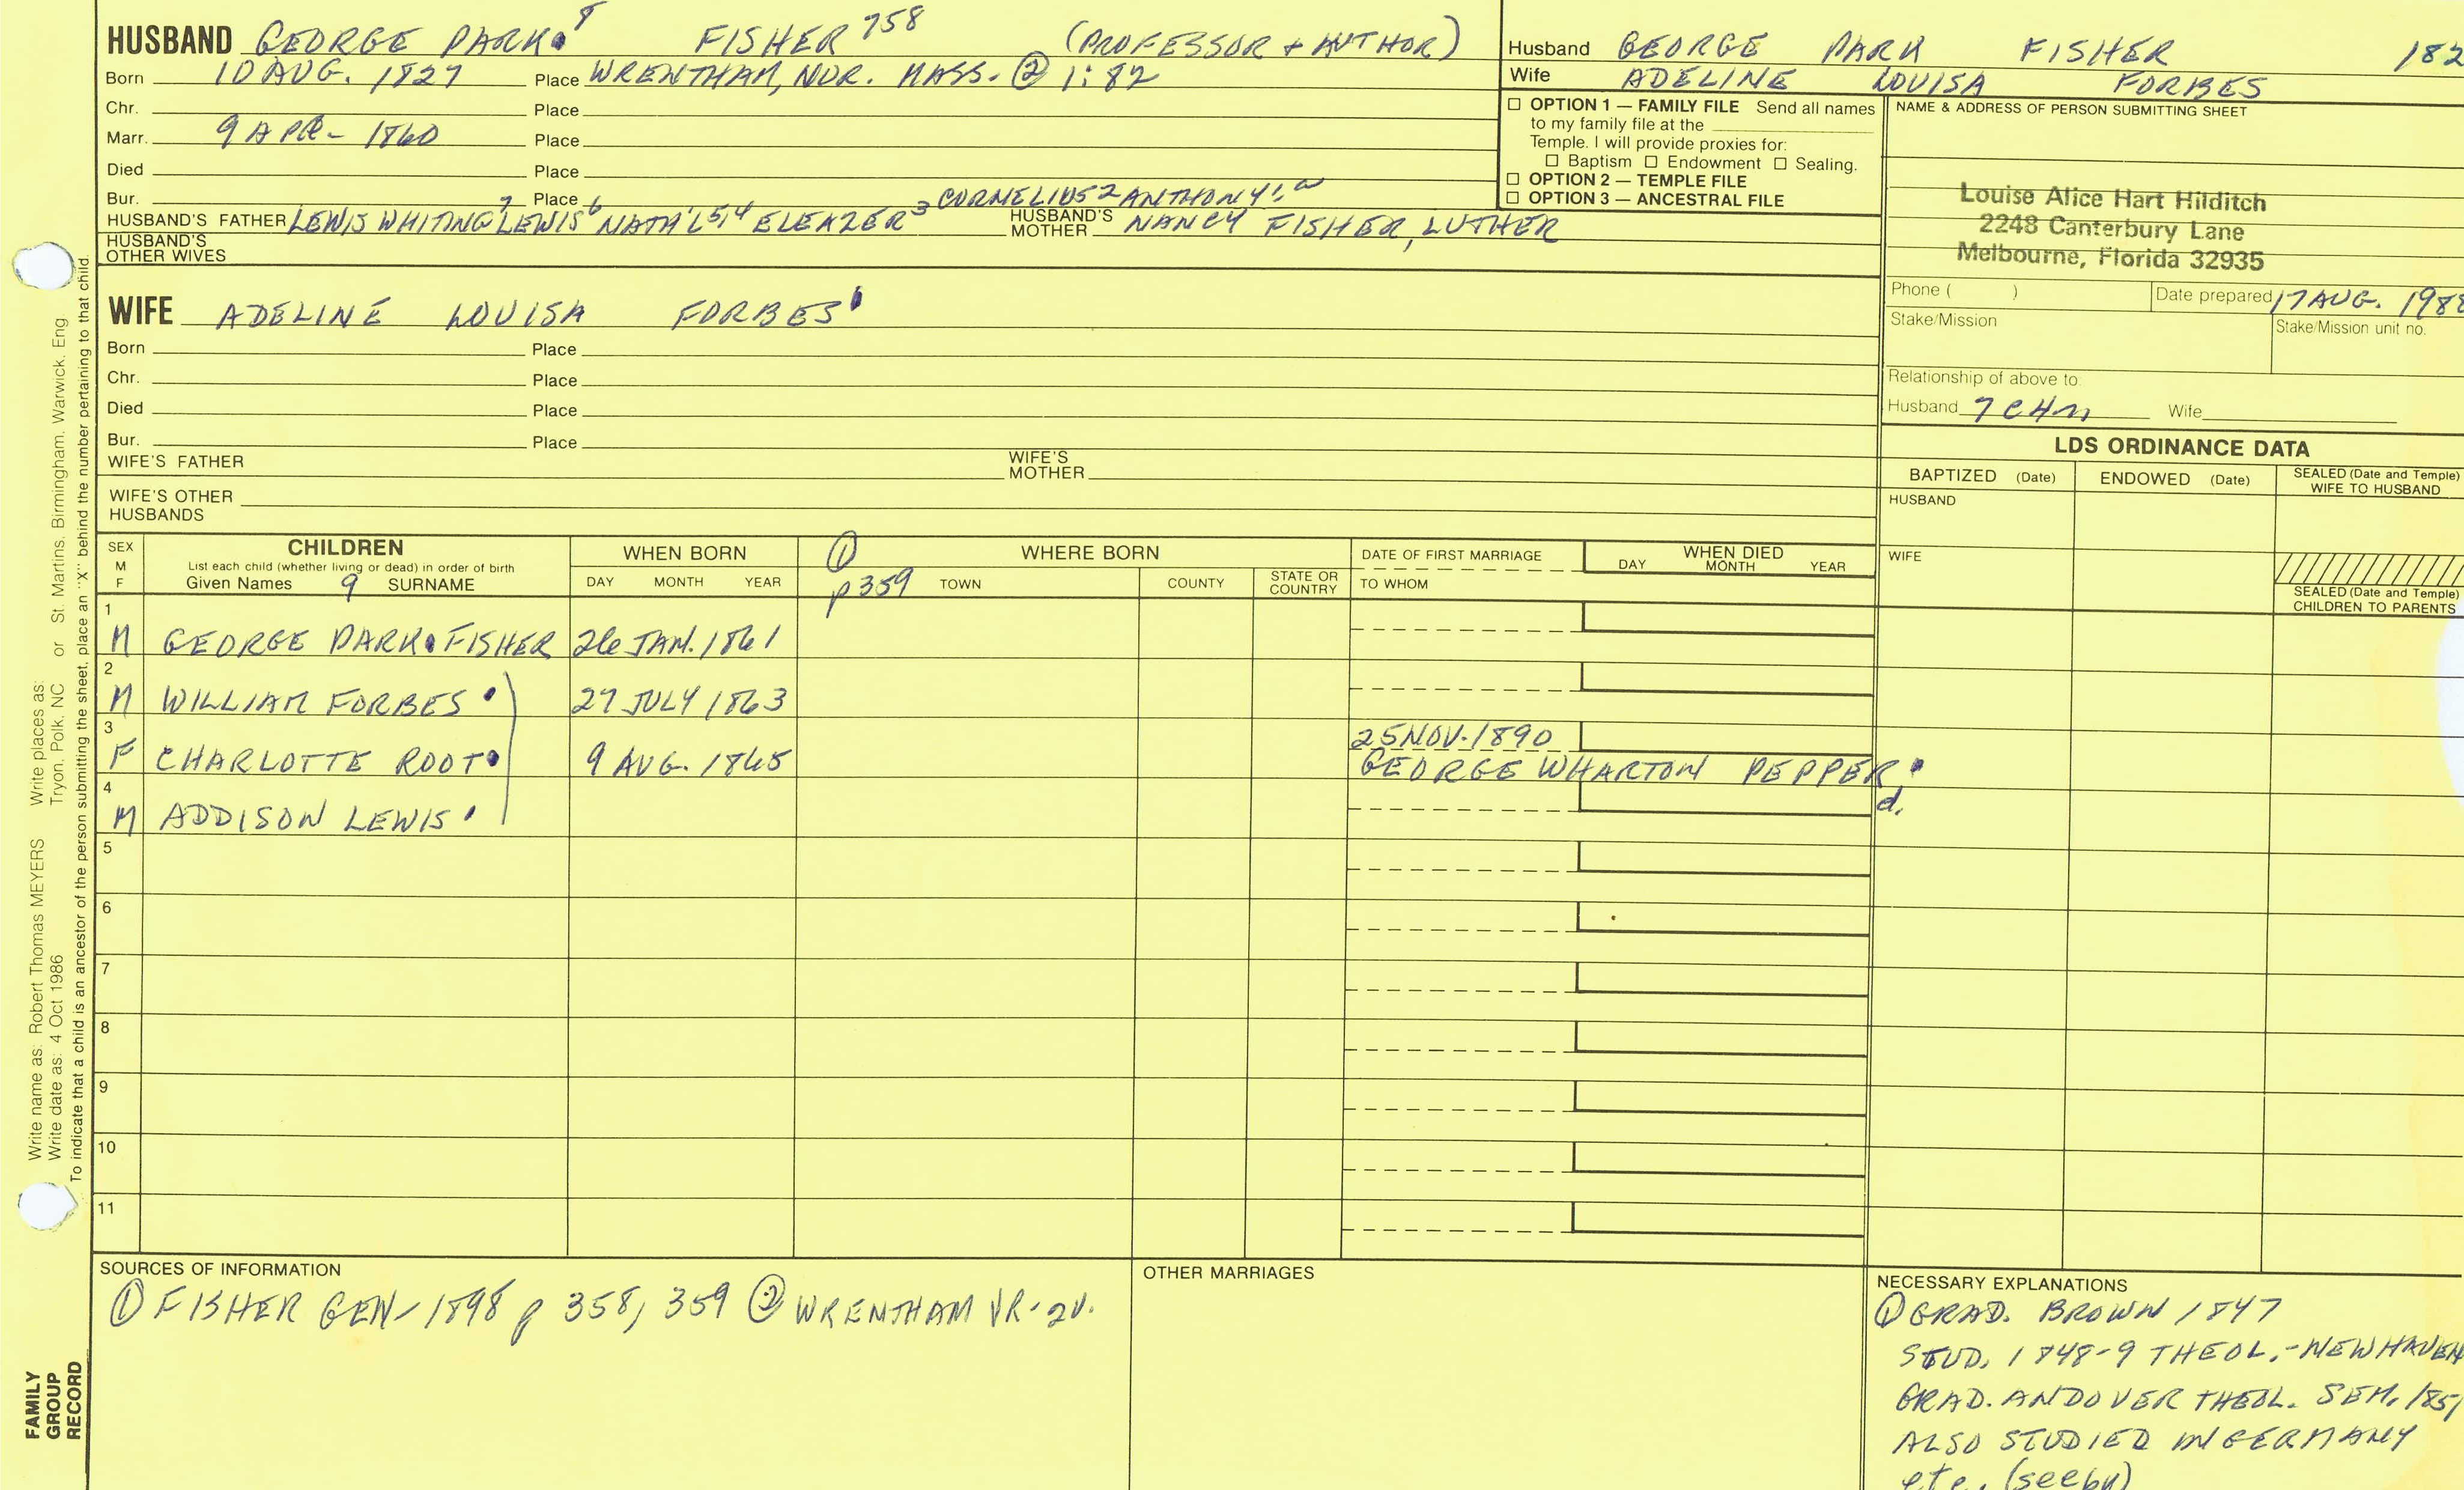 HUSBAND GEORGE PARK 8 FISHER 758 (PROFESSOR + AUTHOR)
Born 10 AUG. 1827 Place WRENTHAM, NOR. MASS. ② 1:82
Chr. Place
Marr. 9 APR - 1860 Place
Died Place
Bur. Place CORNELIUS 2 ANTHONY 1,
HUSBAND'S FATHER LEWIS WHITING 7 LEWIS 6 NATH'L 5,4 ELEAZER 3 HUSBAND'S MOTHER NANCY FISHER, LUTHER
HUSBAND'S OTHER WIVES
Husband GEORGE PARK FISHER 182
Wife ADELINE LOUISA FORBES
☐ OPTION 1 — FAMILY FILE Send all names
to my family file at the
Temple. I will provide proxies for:
☐ Baptism ☐ Endowment ☐ Sealing.
☐ OPTION 2 — TEMPLE FILE
☐ OPTION 3 — ANCESTRAL FILE
NAME & ADDRESS OF PERSON SUBMITTING SHEET
Louise Alice Hart Hilditch
2248 Canterbury Lane
Melbourne, Florida 32935
Phone ( ) Date prepared 17 AUG. 1988
Stake/Mission Stake/Mission unit no.
Relationship of above to:
Husband 7C4R Wife
WIFE ADELINE LOUISA FORBES
Born Place
Chr. Place
Died Place
Bur. Place
WIFE'S FATHER WIFE'S MOTHER
WIFE'S OTHER HUSBANDS
LDS ORDINANCE DATA
BAPTIZED (Date) ENDOWED (Date) SEALED (Date and Temple) WIFE TO HUSBAND
HUSBAND
WIFE
SEALED (Date and Temple) CHILDREN TO PARENTS
SEX M F CHILDREN WHEN BORN ① WHERE BORN DATE OF FIRST MARRIAGE WHEN DIED
List each child (whether living or dead) in order of birth
Given Names 9 SURNAME DAY MONTH YEAR p 359 TOWN COUNTY STATE OR COUNTRY TO WHOM DAY MONTH YEAR
1
M GEORGE PARK FISHER 26 JAN. 1861
2
M WILLIAM FORBES 27 JULY 1863
3 25 NOV. 1890
F CHARLOTTE ROOT 9 AUG. 1865 GEORGE WHARTON PEPPER
4 d.
M ADDISON LEWIS
5
6
7
8
9
10
11
SOURCES OF INFORMATION
① FISHER GEN - 1898 p 358, 359 ② WRENTHAM VR - 2V.
OTHER MARRIAGES
NECESSARY EXPLANATIONS
① GRAD. BROWN 1847
STUD. 1848-9 THEOL. - NEW HAVEN
GRAD. ANDOVER THEOL. SEM. 1851
ALSO STUDIED IN GERMANY
etc. (see
Write name as: Robert Thomas MEYERS Write places as: Tryon, Polk, NC or St. Martins, Birmingham, Warwick, Eng
Write date as: 4 Oct 1986
To indicate that a child is an ancestor of the person submitting the sheet, place an "X" behind the number pertaining to that child.
FAMILY
GROUP
RECORD